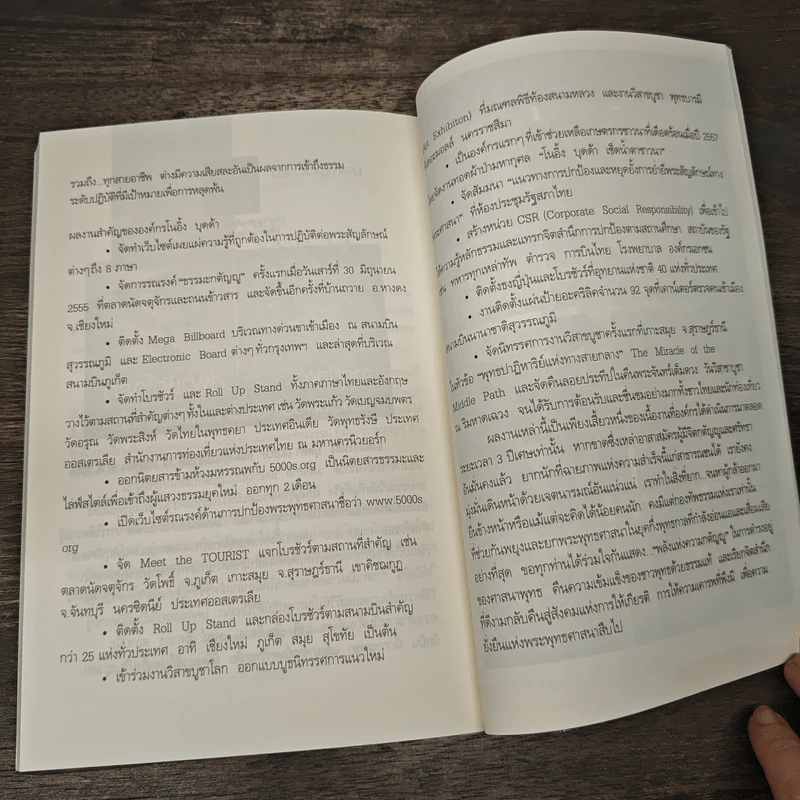 รวมถึง...ทุกสายอาชีพ ต่างมีความเสียสละอันเป็นผลจากการเข้าถึงธรรม
ระดับปฏิบัติที่มีเป้าหมายเพื่อการหลุดพ้น
ผลงานสำคัญขององค์กรโนอิ้ง บุดด้า
• จัดทำเว็บไซต์เผยแผ่ความรู้ที่ถูกต้องในการปฏิบัติต่อพระสัญลักษณ์
ต่างๆ ถึง 8 ภาษา
• จัดการรณรงค์ "ธรรมะกตัญญู" ครั้งแรกเมื่อวันเสาร์ที่ 30 มิถุนายน
2555 ที่ตลาดนัดจตุจักรและถนนข้าวสาร และจัดขึ้นอีกครั้งที่บ้านถวาย อ.หางดง
จ.เชียงใหม่
• ติดตั้ง Mega Billboard บริเวณทางด่วนขาเข้าเมือง ณ สนามบิน
สุวรรณภูมิ และ Electronic Board ต่างๆ ทั่วกรุงเทพฯ และล่าสุดที่บริเวณ
สนามบินภูเก็ต
• จัดทำโบรชัวร์ และ Roll Up Stand ทั้งภาคภาษาไทยและอังกฤษ
วางไว้ตามสถานที่สำคัญต่างๆ ทั้งในและต่างประเทศ เช่น วัดพระแก้ว วัดเบญจมบพตร
วัดอรุณ วัดพระสิงห์ วัดไทยในพุทธคยา ประเทศอินเดีย วัดพุทธรังษี ประเทศ
ออสเตรเลีย สำนักงานการท่องเที่ยวแห่งประเทศไทย ณ มหานครนิวยอร์ก
• ออกนิตยสารข้ามห้วงมหรรณพกับ 5000s.org เป็นนิตยสารธรรมะและ
ไลฟ์สไตล์เพื่อเข้าถึงผู้แสวงธรรมยุคใหม่ ออกทุก 2 เดือน
• เปิดเว็บไซต์รณรงค์ด้านการปกป้องพระพุทธศาสนาชื่อว่า www.5000s.
org
• จัด Meet the TOURIST แจกโบรชัวร์ตามสถานที่สำคัญ เช่น
ตลาดนัดจตุจักร วัดโพธิ์ จ.ภูเก็ต เกาะสมุย จ.สุราษฎร์ธานี เขาคิชฌกูฏ
จ.จันทบุรี นครซิดนีย์ ประเทศออสเตรเลีย
• ติดตั้ง Roll Up Stand และกล่องโบรชัวร์ตามสนามบินสำคัญ
กว่า 25 แห่งทั่วประเทศ อาทิ เชียงใหม่ ภูเก็ต สมุย สุโขทัย เป็นต้น
• เข้าร่วมงานวิสาขบูชาโลก ออกแบบบูธนิทรรศการแนวใหม่
Exhibiton) ที่มณฑลพิธีท้องสนามหลวง และงานวิสาขบูชา พุทธบารมี
นครราชสีมา
• เป็นองค์กรแรกๆ ที่เข้าช่วยเหลือเกษตรกรชาวนาที่เดือดร้อนเมื่อปี 2557
จัดงานทอดผ้าป่ามหากุศล "โนอิ้ง บุดด้า เช็ดน้ำตาชาวนา"
• จัดสัมมนา "แนวทางการปกป้องและหยุดยั้งการย่ำยีพระสัญลักษณ์ทาง
พระศาสนา" ที่ห้องประชุมรัฐสภาไทย
• สร้างหน่วย CSR (Corporate Social Responsibility) เพื่อเข้าไป
ให้ความรู้หลักธรรมและแทรกจิตสำนึกการปกป้องตามสถานศึกษา สถาบันของรัฐ
เช่น ทหารทุกเหล่าทัพ ตำรวจ การบินไทย โรงพยาบาล องค์กรเอกชน
• ติดตั้งธงญี่ปุ่นและโบรชัวร์ที่อุทยานแห่งชาติ 40 แห่งทั่วประเทศ
• งานติดตั้งแผ่นป้ายอะคริลิคจำนวน 92 จุดที่เคาน์เตอร์ตรวจคนเข้าเมือง
สนามบินนานาชาติสุวรรณภูมิ
• จัดนิทรรศการงานวิสาขบูชาครั้งแรกที่เกาะสมุย จ.สุราษฎร์ธานี
ในหัวข้อ "พุทธปาฏิหาริย์แห่งทางสายกลาง" The Miracle of the
Middle Path และจัดคืนลอยประทีปในคืนพระจันทร์เต็มดวง วันวิสาขบูชา
ณ ริมหาดเฉวง จนได้รับการต้อนรับและชื่นชมอย่างมากทั้งชาวไทยและนักท่องเที่ยว
ผลงานเหล่านี้เป็นเพียงเสี้ยวหนึ่งของเนื้องานที่องค์กรได้ดำเนินการมาตลอด
ระยะเวลา 3 ปีเศษเท่านั้น หากขาดซึ่งเหล่าอาสาสมัครผู้มีจิตกตัญญูและศรัทธา
อันมั่นคงแล้ว ยากนักที่ฉายภาพแห่งความสำเร็จนี้แก่สาธารณชนได้ เรายังคง
มุ่งมั่นเดินหน้าด้วยเจตนารมณ์อันแน่วแน่ เราทำในสิ่งที่ยาก...จนหาผู้กล้าออกมา
ยืนข้างหน้าหรือแม้แต่จะคิดได้น้อยคนนัก คงมีแต่กองทัพธรรมแห่งเราเท่านั้น
ที่ช่วยกันพยุงและยกพระพุทธศาสนาในยุคกึ่งพุทธกาลที่กำลังอ่อนแอและเสื่อมเสีย
อย่างที่สุด ขอทุกท่านได้ร่วมใจกันแสดง "พลังแห่งความกตัญญู" ในการดำรงอยู่
ของศาสนาพุทธ คืนความเข้มแข็งของชาวพุทธด้วยธรรมแท้ และเรียกจิตสำนึก
ที่ดีงามกลับคืนสู่สังคมแห่งการให้เกียรติ การให้ความเคารพที่พึงมี เพื่อความ
ยั่งยืนแห่งพระพุทธศาสนาสืบไป